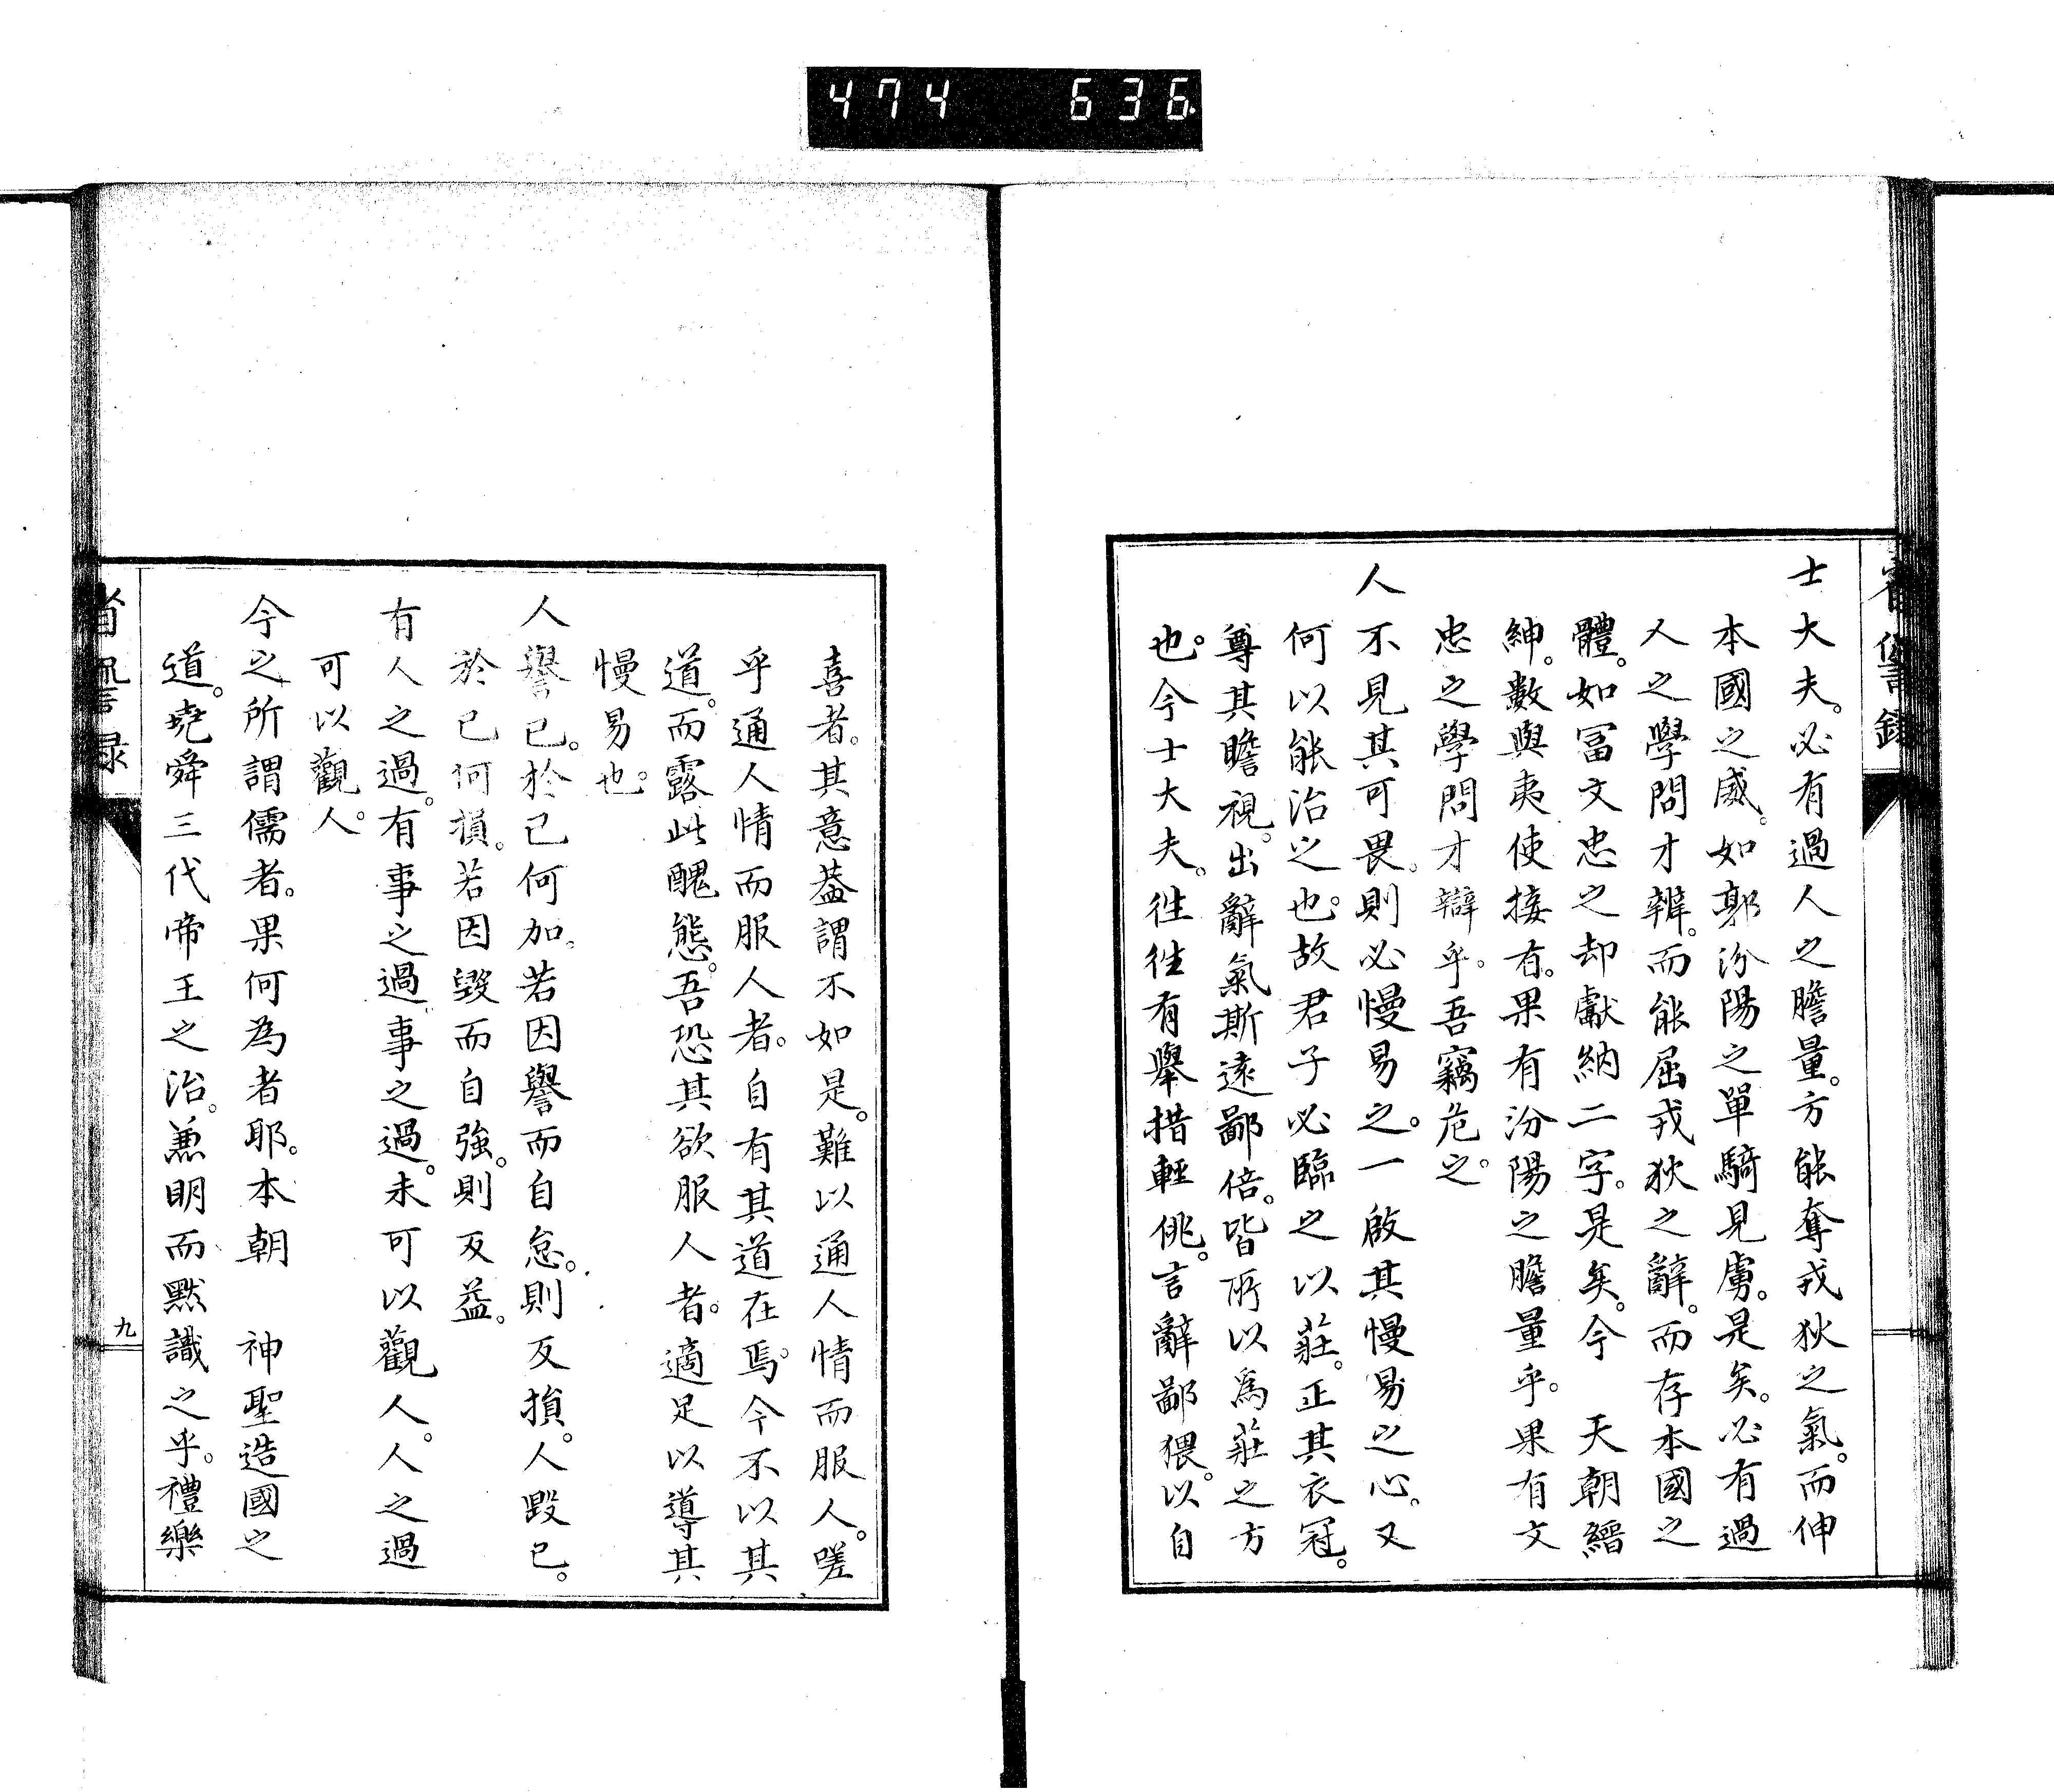 474 636
省諐録
士大夫。必有過人之膽量。方能奪戎狄之氣。而伸
本國之威。如郭汾陽之單騎見虜。是矣。必有過
人之學問才辨。而能屈戎狄之辭。而存本國之
體。如冨文忠之却獻納二字。是矣。今　天朝縉
紳。數與夷使接有。果有汾陽之膽量乎。果有文
忠之學問才辯乎。吾竊危之。
人不見其可畏。則必慢易之。一啟其慢易之心。又
何以能治之也。故君子必臨之以莊。正其衣冠。
尊其瞻視。出辭氣斯遠鄙倍。皆所以爲莊之方
也。今士大夫。徃徃有舉措輕佻。言辭鄙猥。以自
喜者。其意蓋謂不如是。難以通人情而服人。嗟
乎通人情而服人者。自有其道在焉。今不以其
道。而露此醜態。吾恐其欲服人者。適足以導其
慢易也。
人譽已。於已何加。若因譽而自怠。則反損。人毀已。
於已何損。若因毀而自強。則反益。
有人之過。有事之過。事之過。未可以觀人。人之過
可以觀人。
今之所謂儒者。果何為者耶。本朝　神聖造國之
道。堯舜三代帝王之治。兼明而默識之乎。禮樂
省諐録
九